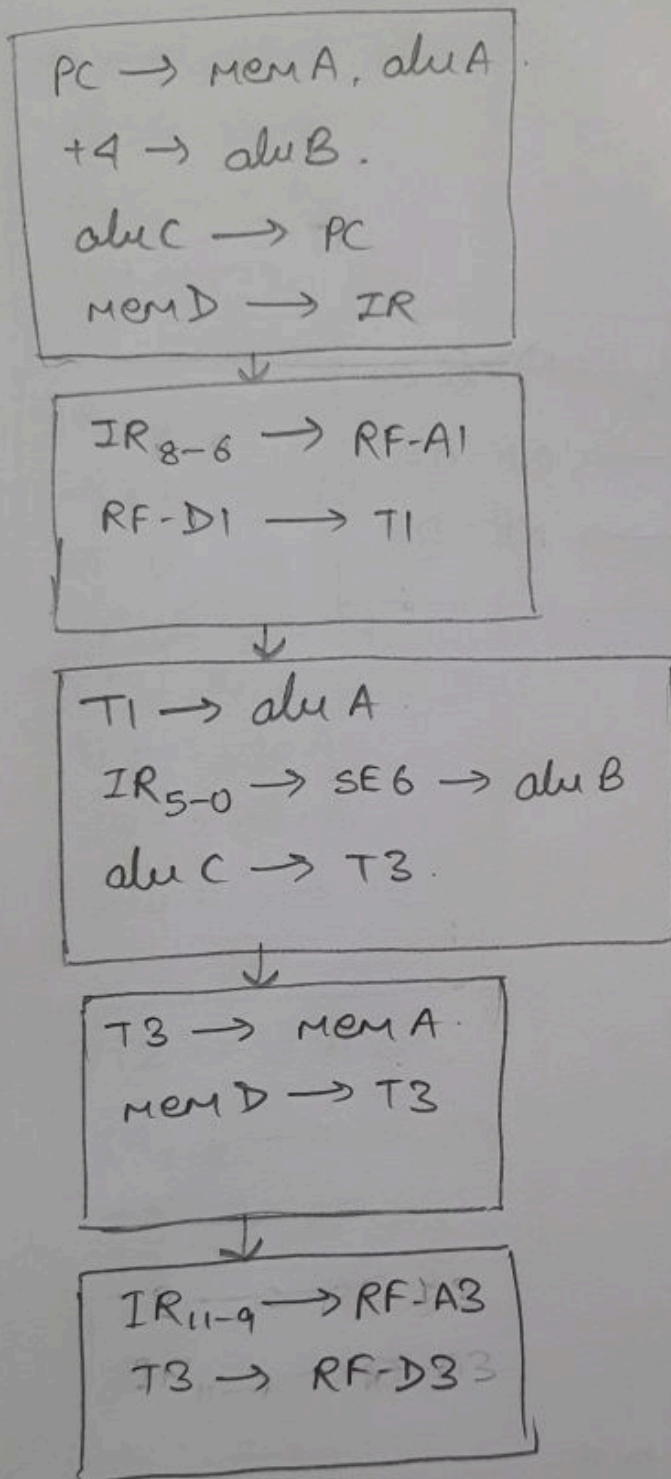 PC → MEMA, aluA
+4 → aluB.
aluC → PC
MEMD → IR
IR₈₋₆ → RF-A1
RF-D1 → T1
T1 → aluA
IR₅₋₀ → SE6 → aluB
aluC → T3.
T3 → MEMA.
MEMD → T3
IR₁₁₋₉ → RF-A3
T3 → RF-D3